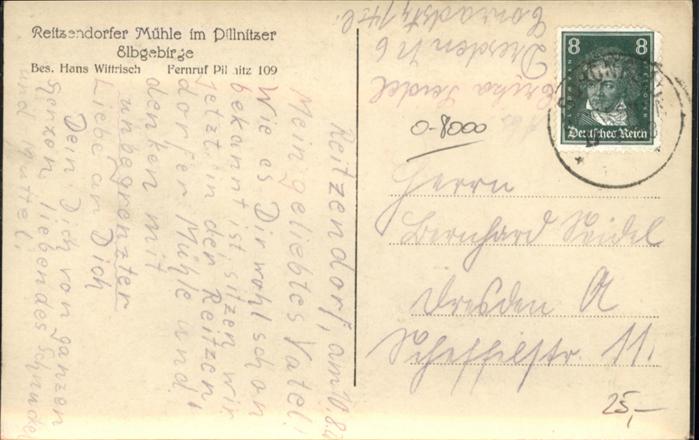 Reitzendorfer Mühle im Pillnitzer
Elbgebirge
Bes. Hans Wittrisch Fernruf Pillnitz 109
Reitzendorf, am
Mein geliebtes Vatel!
Wie es Dir wohl schon
bekannt ist, sitzen wir
jetzt in der Reitzen-
dorfer Mühle und
denken mit
unbegrenzter
Liebe an Dich
Dein Dich von ganzen
Herzen liebendes
und Muttel.
Erika Seidel
Dresden N 6
Conradstr.
8 8
Deutsches Reich
0-8000
Herrn
Bernhard Seidel
Dresden A
Scheffelstr. 11.
25,-